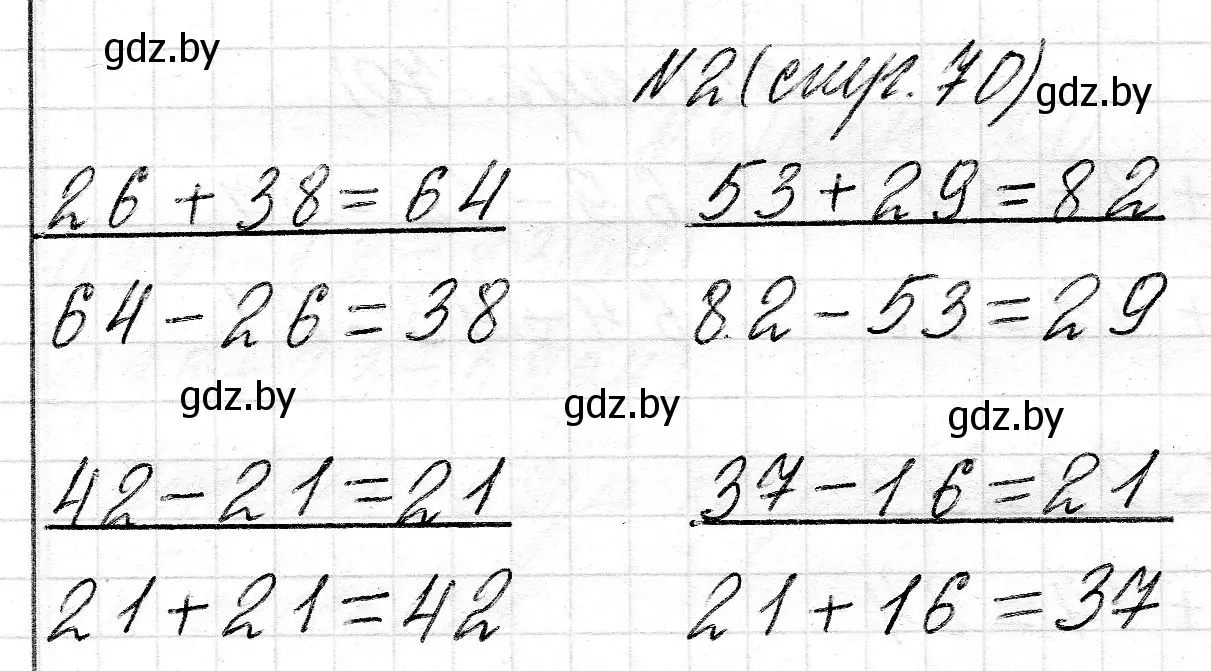 gdz.by
№2 (стр. 70) gdz.by
26 + 38 = 64 53 + 29 = 82
64 - 26 = 38 82 - 53 = 29
gdz.by gdz.by gdz.by
42 - 21 = 21 37 - 16 = 21
21 + 21 = 42 21 + 16 = 37